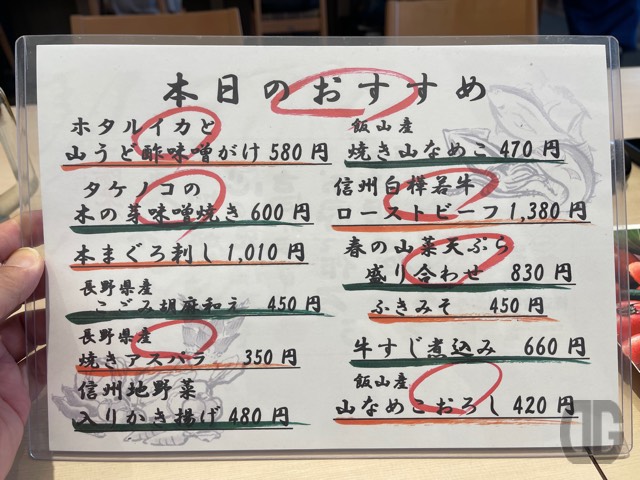 本日のおすすめ
ホタルイカと
山うど酢味噌がけ 580 円
タケノコの
木の芽味噌焼き 600 円
本まぐろ刺し 1,010 円
長野県産
こごみ胡麻和え 450 円
長野県産
焼きアスパラ 350 円
信州地野菜
入りかき揚げ 480 円
飯山産
焼き山なめこ 470 円
信州白樺若牛
ローストビーフ 1,380 円
春の山菜天ぷら
盛り合わせ 830 円
ふきみそ 450 円
牛すじ煮込み 660 円
飯山産
山なめこおろし 420 円